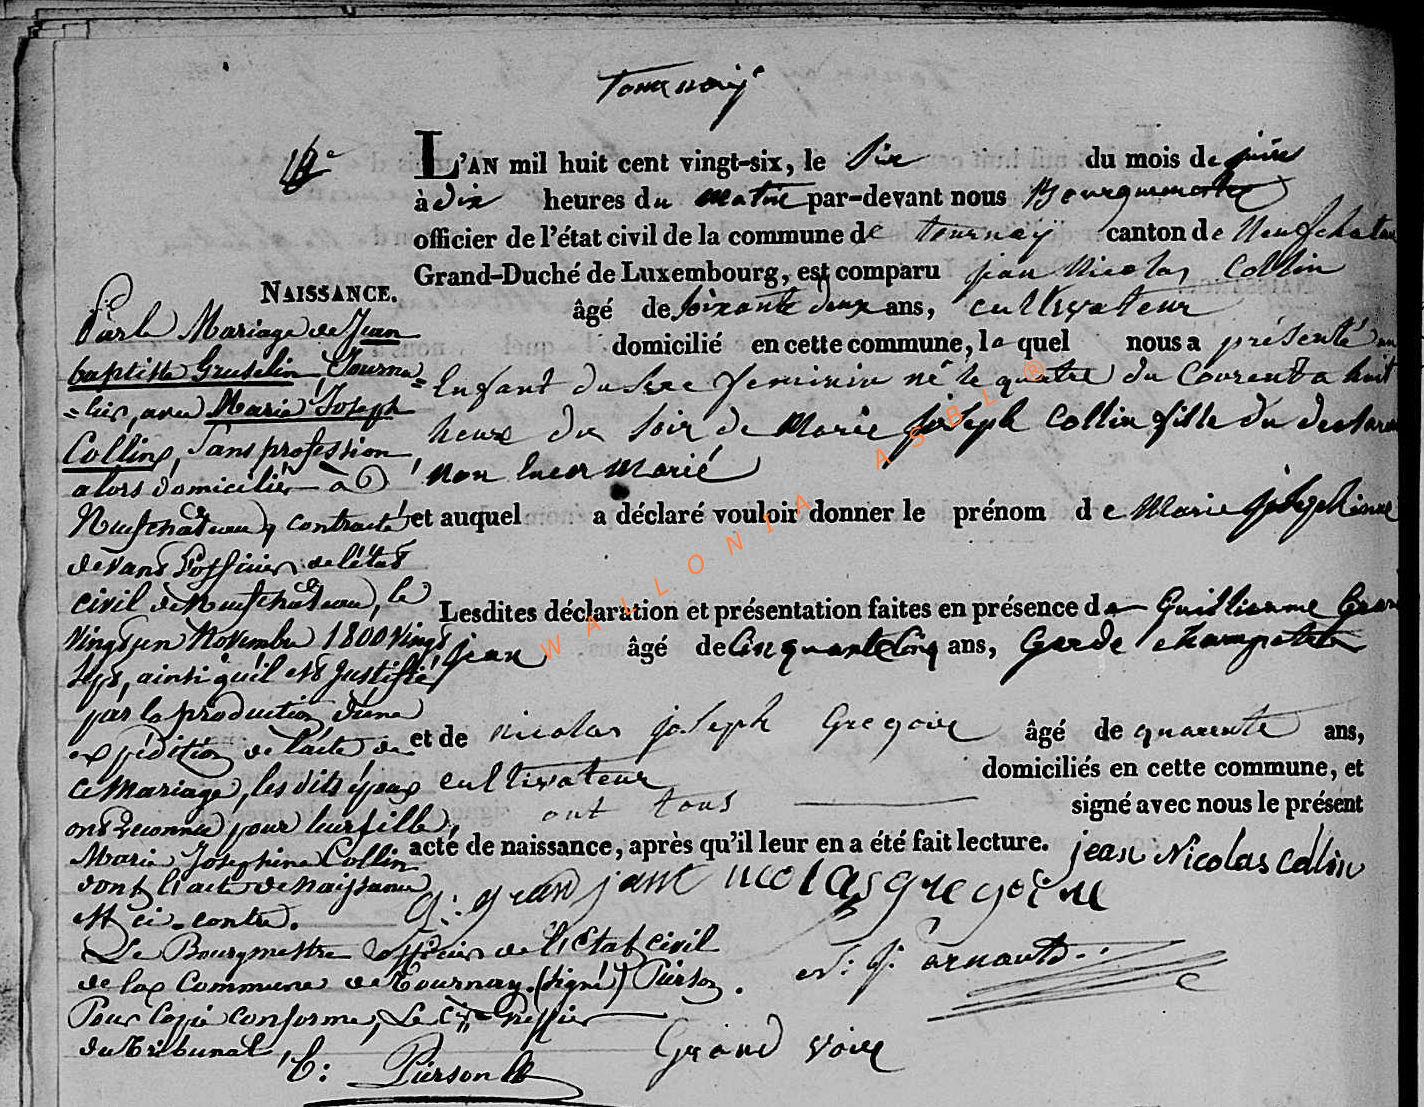 Tournaÿ
L'AN mil huit cent vingt-six, le six du mois de juin
à dix heures du matin par-devant nous Bourguemestre
officier de l'état civil de la commune de tournaÿ canton de Neufchateau
Grand-Duché de Luxembourg, est comparu jean Nicolas Collin
âgé de soixante deux ans, cultivateur
domicilié en cette commune, le quel nous a présenté un
Enfant du sexe feminin né le quatre du Courent a huit
heure du soir de Marie joseph Collin fille du declara
non encor Marié
et auquel a déclaré vouloir donner le prénom de Marie josephinne
Lesdites déclaration et présentation faites en présence de Guilliaume Gran
jean âgé de cinquante cinq ans, Garde champetre
et de nicolas joseph Gregoire âgé de quarente ans,
cultivateur domiciliés en cette commune, et
ont tous signé avec nous le présent
acte de naissance, après qu'il leur en a été fait lecture.
jean Nicolas colin
G: grand jant nicolas gregoire
N: J. arnould
Grand voir
NAISSANCE.
Par le Mariage de Jean
baptiste Gruselin, Journa=
=lier, avec Marie Joseph
Collin, sans profession,
alors domiciliés à
Neufchâteau, contracté
devant l'officier de l'état
civil de Neufchâteau, le
vingt un Novembre 1800 vingt
sept, ainsi qu'il est justifié
par la production d'une
expédition de l'acte de
ce mariage, les dits époux
ont reconnu pour leur fille,
Marie Josephine Collin
dont l'acte de naissance
est ci-contre.
Le Bourgmestre officier de l'Etat civil
de la Commune de Tournay. (signé) Pierson.
Pour copie conforme, Le Greffier
du Tribunal,
C: Pierson
WALLONIA ASBL ®